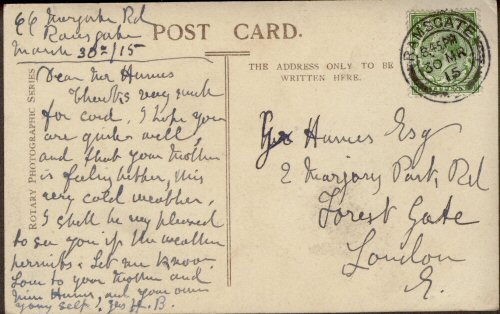 66 Margate Rd
Ramsgate
March 30th/15
POST CARD.
THE ADDRESS ONLY TO BE
WRITTEN HERE.
ROTARY PHOTOGRAPHIC SERIES
RAMSGATE
8.45 PM
30 MR
15
Dear Mr Humes
Thanks very much
for card, I hope you
are quite well,
and that your Mother
is feeling better, this
very cold weather.
I shall be very pleased
to see you if the weather
permits. Let me know
Love to your Mother and
Miss Humes, and your own
H.B.
Humes Esq
2 Marjory Park, Rd
Forest Gate
London
E.